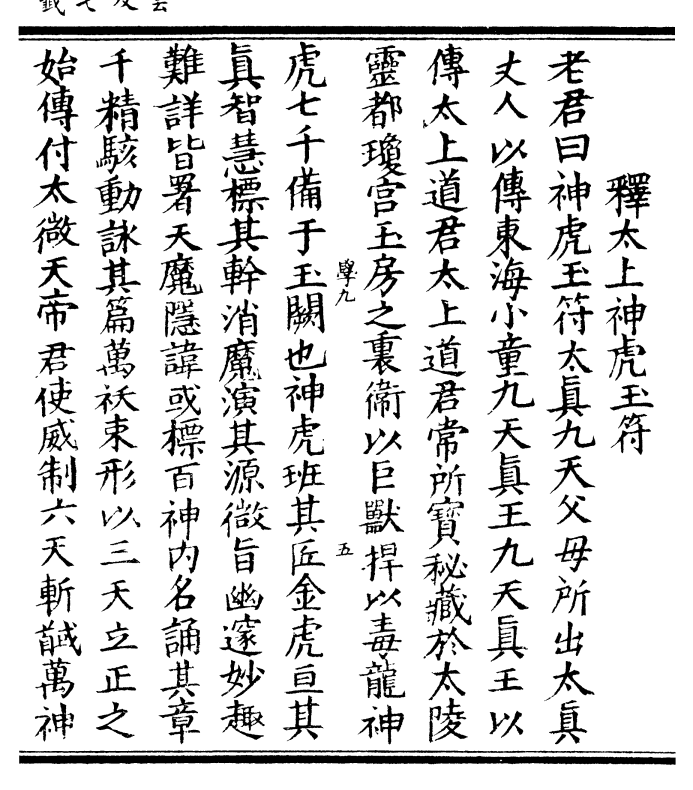 釋太上神虎玉符
老君曰神虎玉符太眞九天父母所出太眞
丈人以傳東海小童九天眞王九天眞王以
傳太上道君太上道君常所寶秘藏於太陵
靈都瓊宮玉房之裏衞以巨獸捍以毒龍神
學九
五
虎七千備于玉闕也神虎班其匠金虎亘其
眞智慧標其幹消魔演其源微旨幽邃妙趣
難詳皆署天魔隱諱或標百神內名誦其章
千精駭動詠其篇萬祅束形以三天立正之
始傳付太微天帝君使威制六天斬馘萬神